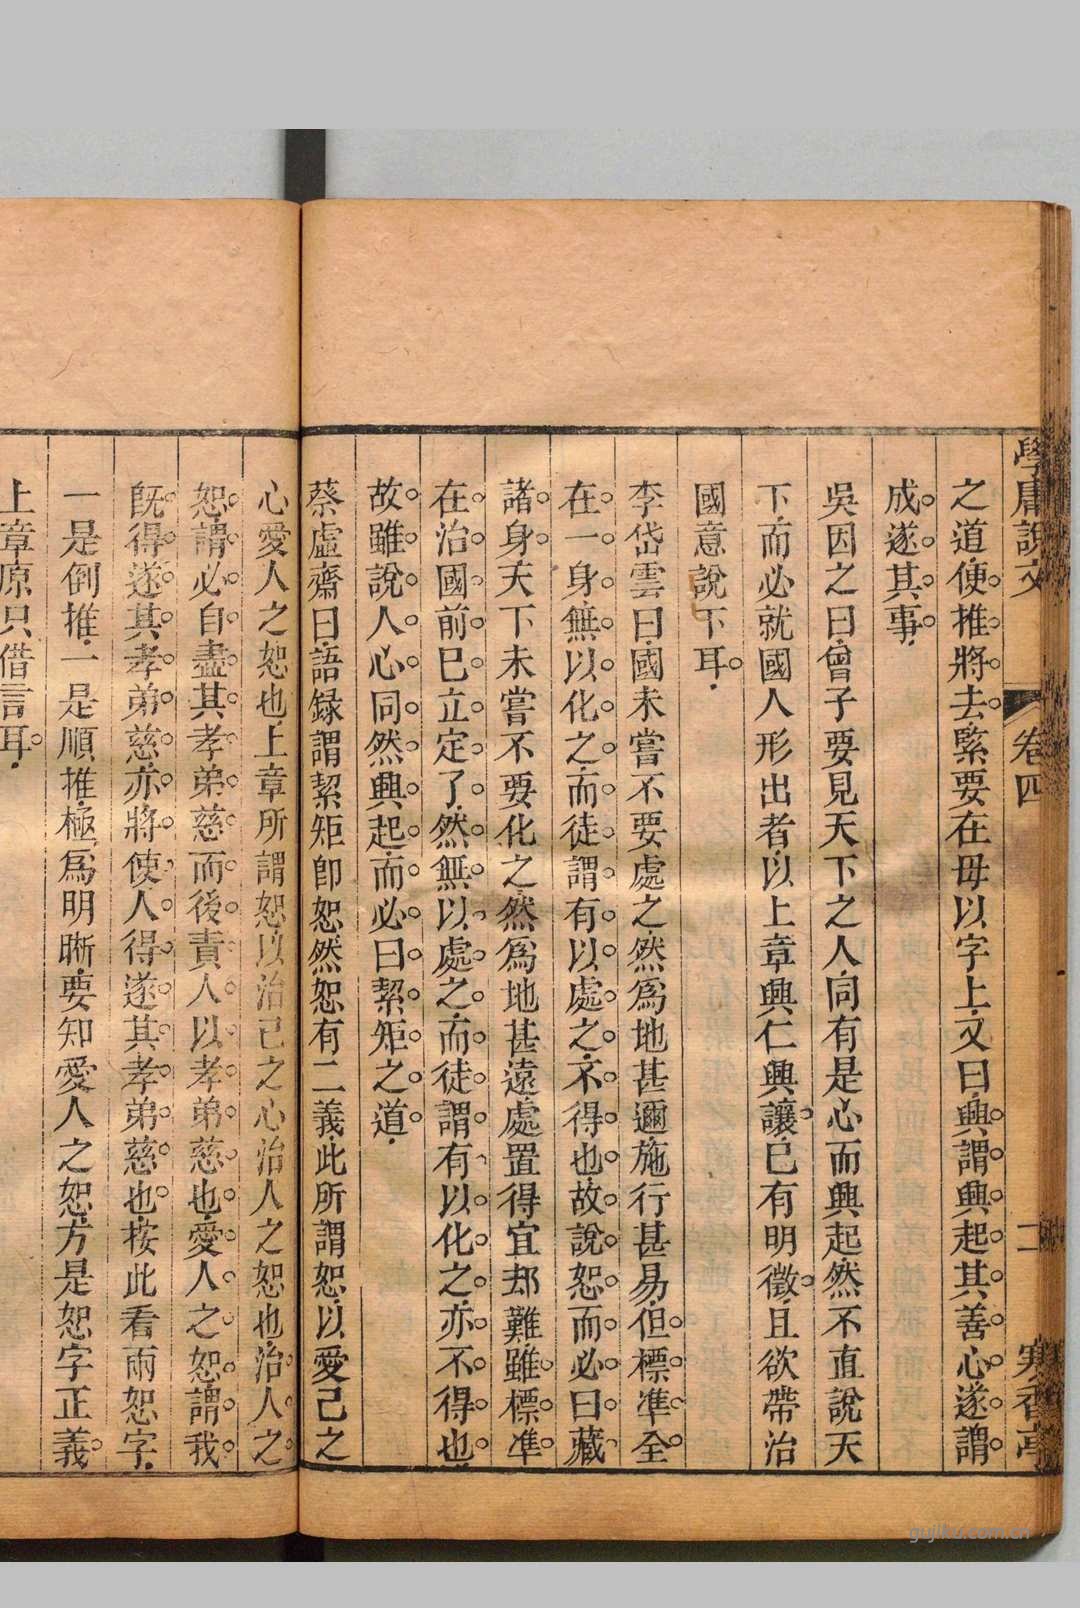 學庸說文 卷四 二 寒香亭
之道便推將去緊要在毋以字上又曰興謂興起其善心遂謂
成遂其事
吳因之曰曾子要見天下之人同有是心而興起然不直說天
下而必就國人形出者以上章興仁興讓已有明徵且欲帶治
國意說下耳
李岱雲曰國未嘗不要處之然爲地甚邇施行甚易但標準全
在一身無以化之而徒謂有以處之不得也故說恕而必曰藏
諸身天下未嘗不要化之然爲地甚遠處置得宜却難雖標準
在治國前已立定了然無以處之而徒謂有以化之亦不得也
故雖說人心同然興起而必曰絜矩之道
蔡虛齋曰語録謂絜矩卽恕然恕有二義此所謂恕以愛己之
心愛人之恕也上章所謂恕以治己之心治人之恕也治人之
恕謂必自盡其孝弟慈而後責人以孝弟慈也愛人之恕謂我
旣得遂其孝弟慈亦將使人得遂其孝弟慈也按此看兩恕字
一是倒推一是順推極爲明晰要知愛人之恕方是恕字正義
上章原只借言耳
gujiku.com.cn